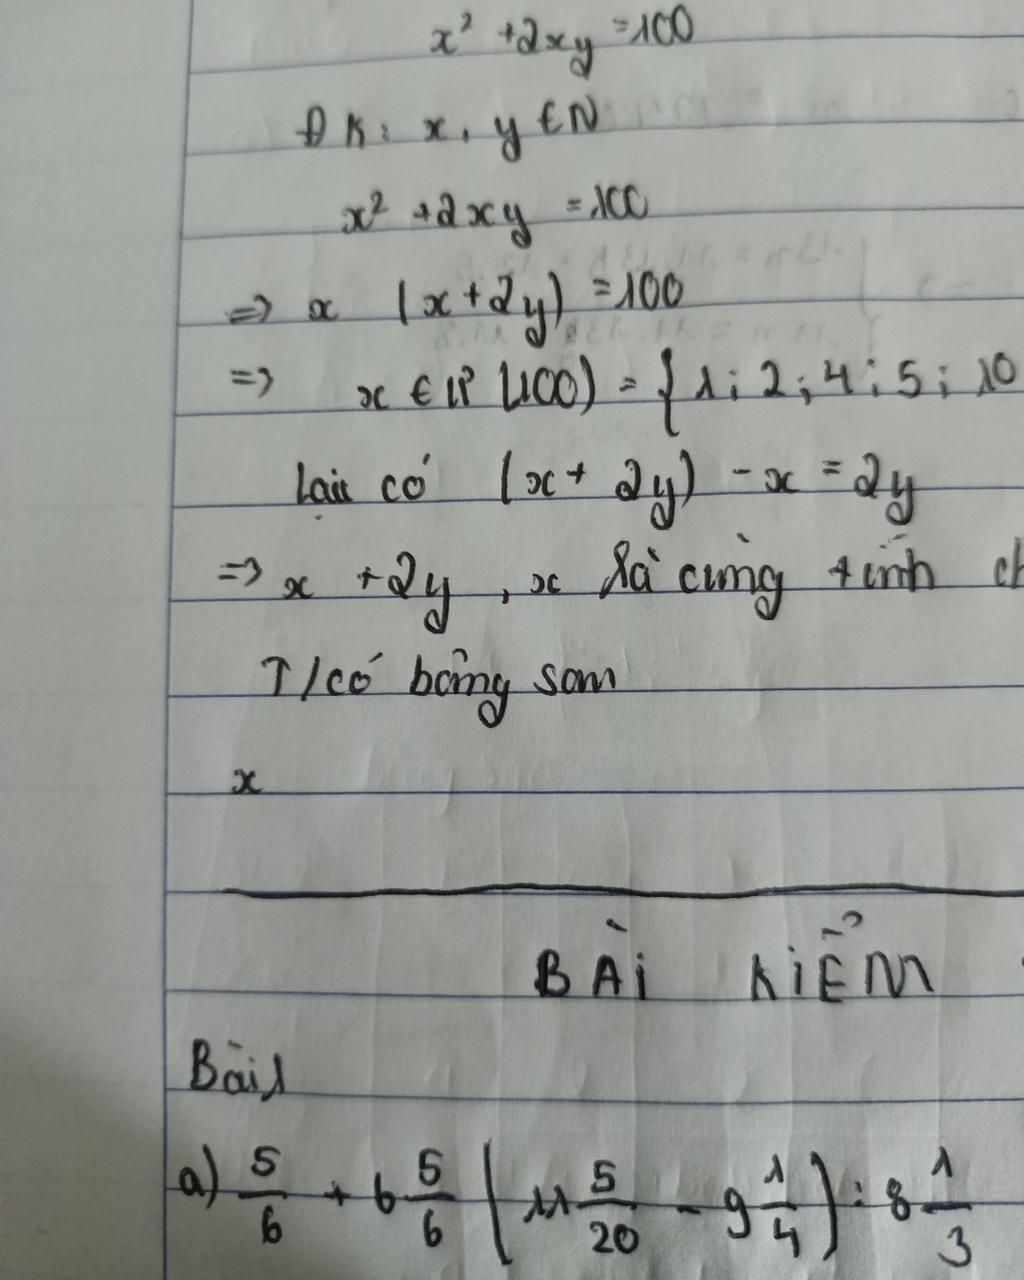 x² + 2xy = 100
ĐK: x, y ∈ N
x² + 2xy = 100
=> x (x + 2y) = 100
=> x ∈ Ư (100) = { 1; 2; 4; 5; 10
Lại có (x + 2y) - x = 2y
=> x + 2y, x là cùng tính ch
T/có bảng sau
x
BÀI KIỂM
Bài 1
a) 5/6 + 6 5/6 ( 11 5/20 - 9 1/4 ) : 8 1/3